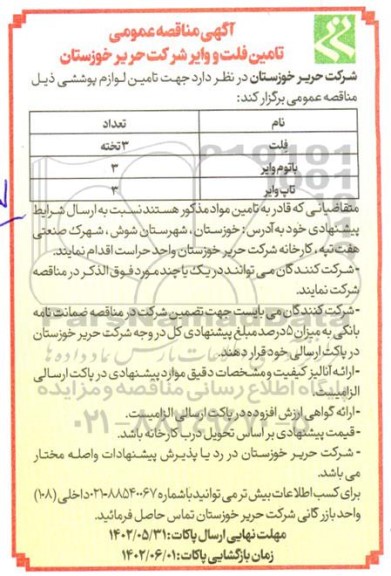 آگهی مناقصه عمومی
تامین فلت و وایر شرکت حریر خوزستان
شرکت حریر خوزستان در نظر دارد جهت تامین لوازم پوششی ذیل
مناقصه عمومی برگزار کند:
نام تعداد
فلت ۳ تخته
باتوم وایر ۳
تاپ وایر ۳
متقاضیانی که قادر به تامین مواد مذکور هستند نسبت به ارسال شرایط
پیشنهادی خود به آدرس: خوزستان، شهرستان شوش، شهرک صنعتی
هفت تپه، کارخانه شرکت حریر خوزستان واحد حراست اقدام نمایند.
- شرکت کنندگان می توانند در یک یا چند مورد فوق الذکر در مناقصه
شرکت نمایند.
- شرکت کنندگان می بایست جهت تضمین شرکت در مناقصه ضمانت نامه
بانکی به میزان ۵ درصد مبلغ پیشنهادی کل در وجه شرکت حریر خوزستان
در پاکت ارسالی خود قرار دهند.
- ارائه آنالیز کیفیت و مشخصات دقیق موارد پیشنهادی در پاکت ارسالی
الزامیست.
- ارائه گواهی ارزش افزوده در پاکت ارسالی الزامیست.
- قیمت پیشنهادی بر اساس تحویل درب کارخانه باشد.
- شرکت حریر خوزستان در رد یا پذیرش پیشنهادات واصله مختار
می باشد.
برای کسب اطلاعات بیش تر می توانید با شماره ۸۸۵۴۰۰۶۷-۰۲۱ داخلی (۱۰۸)
واحد بازرگانی شرکت حریر خوزستان تماس حاصل فرمائید.
مهلت نهایی ارسال پاکات: ۱۴۰۲/۰۵/۳۱
زمان بازگشایی پاکات: ۱۴۰۲/۰۶/۰۱